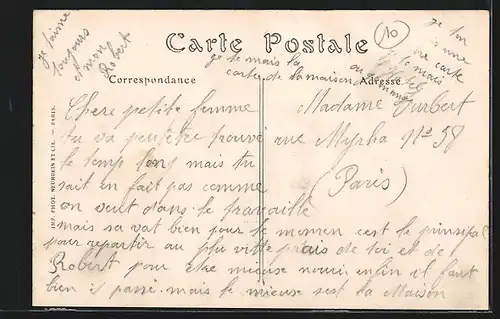 je t'aime
toujours
mon
Robert
Carte Postale
10
je ton
une
ne carte
je te mais la
carte de la maison
Correspondance
Adresse
Chere petite femme
tu va peutetre trouvé
le temp long mais tu
sait en fait pas comme
on veut dans le travaille
mais sa vat bien pour le momen cest le prinsipal
pour repartir au plu vitte prais de toi et de
Robert pour etre mieuse nouri enfin il faut
bien i passé mais le mieuse sest la Maison
Madame Jurbert
rue Myrha Nº 58
(Paris)
IMP. PHOT. NEURDEIN ET CIE. — PARIS.